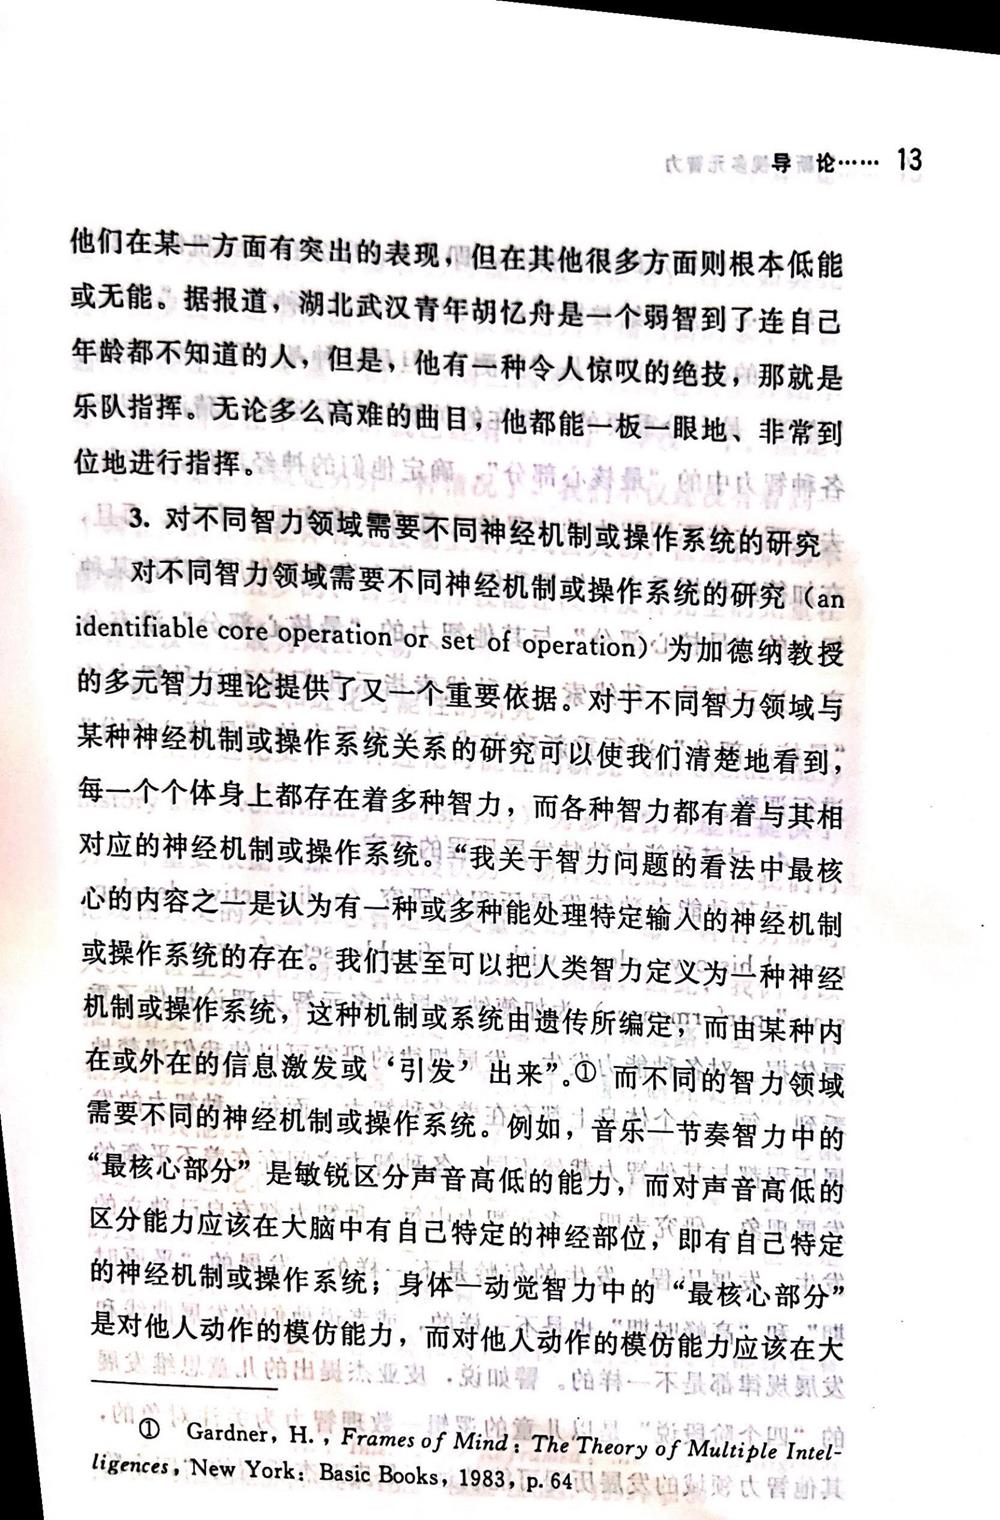 导 论…… 13
他们在某一方面有突出的表现，但在其他很多方面则根本低能
或无能。据报道，湖北武汉青年胡忆舟是一个弱智到了连自己
年龄都不知道的人，但是，他有一种令人惊叹的绝技，那就是
乐队指挥。无论多么高难的曲目，他都能一板一眼地、非常到
位地进行指挥。
3. 对不同智力领域需要不同神经机制或操作系统的研究
对不同智力领域需要不同神经机制或操作系统的研究（an
identifiable core operation or set of operation）为加德纳教授
的多元智力理论提供了又一个重要依据。对于不同智力领域与
某种神经机制或操作系统关系的研究可以使我们清楚地看到，
每一个个体身上都存在着多种智力，而各种智力都有着与其相
对应的神经机制或操作系统。“我关于智力问题的看法中最核
心的内容之一是认为有一种或多种能处理特定输入的神经机制
或操作系统的存在。我们甚至可以把人类智力定义为一种神经
机制或操作系统，这种机制或系统由遗传所编定，而由某种内
在或外在的信息激发或‘引发’出来”。① 而不同的智力领域
需要不同的神经机制或操作系统。例如，音乐—节奏智力中的
“最核心部分”是敏锐区分声音高低的能力，而对声音高低的
区分能力应该在大脑中有自己特定的神经部位，即有自己特定
的神经机制或操作系统；身体—动觉智力中的“最核心部分”
是对他人动作的模仿能力，而对他人动作的模仿能力应该在大
① Gardner, H., Frames of Mind: The Theory of Multiple Intel-
ligences, New York: Basic Books, 1983, p. 64